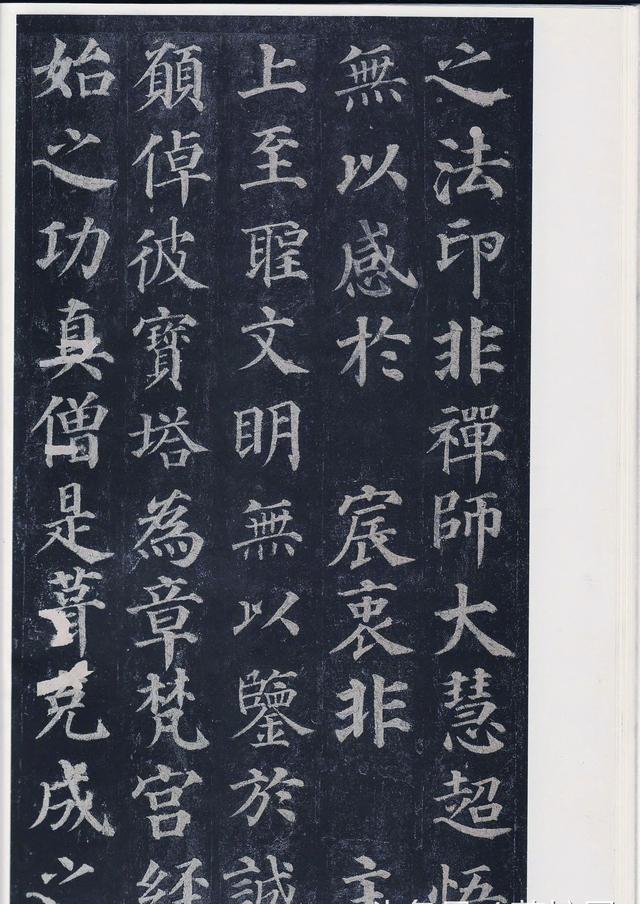 之法印非禪師大慧超悟
無以感於 宸衷非 主
上至聖文眀無以鑒於誠
願倬彼寶塔為章梵宮經
始之功真僧是葺克成之